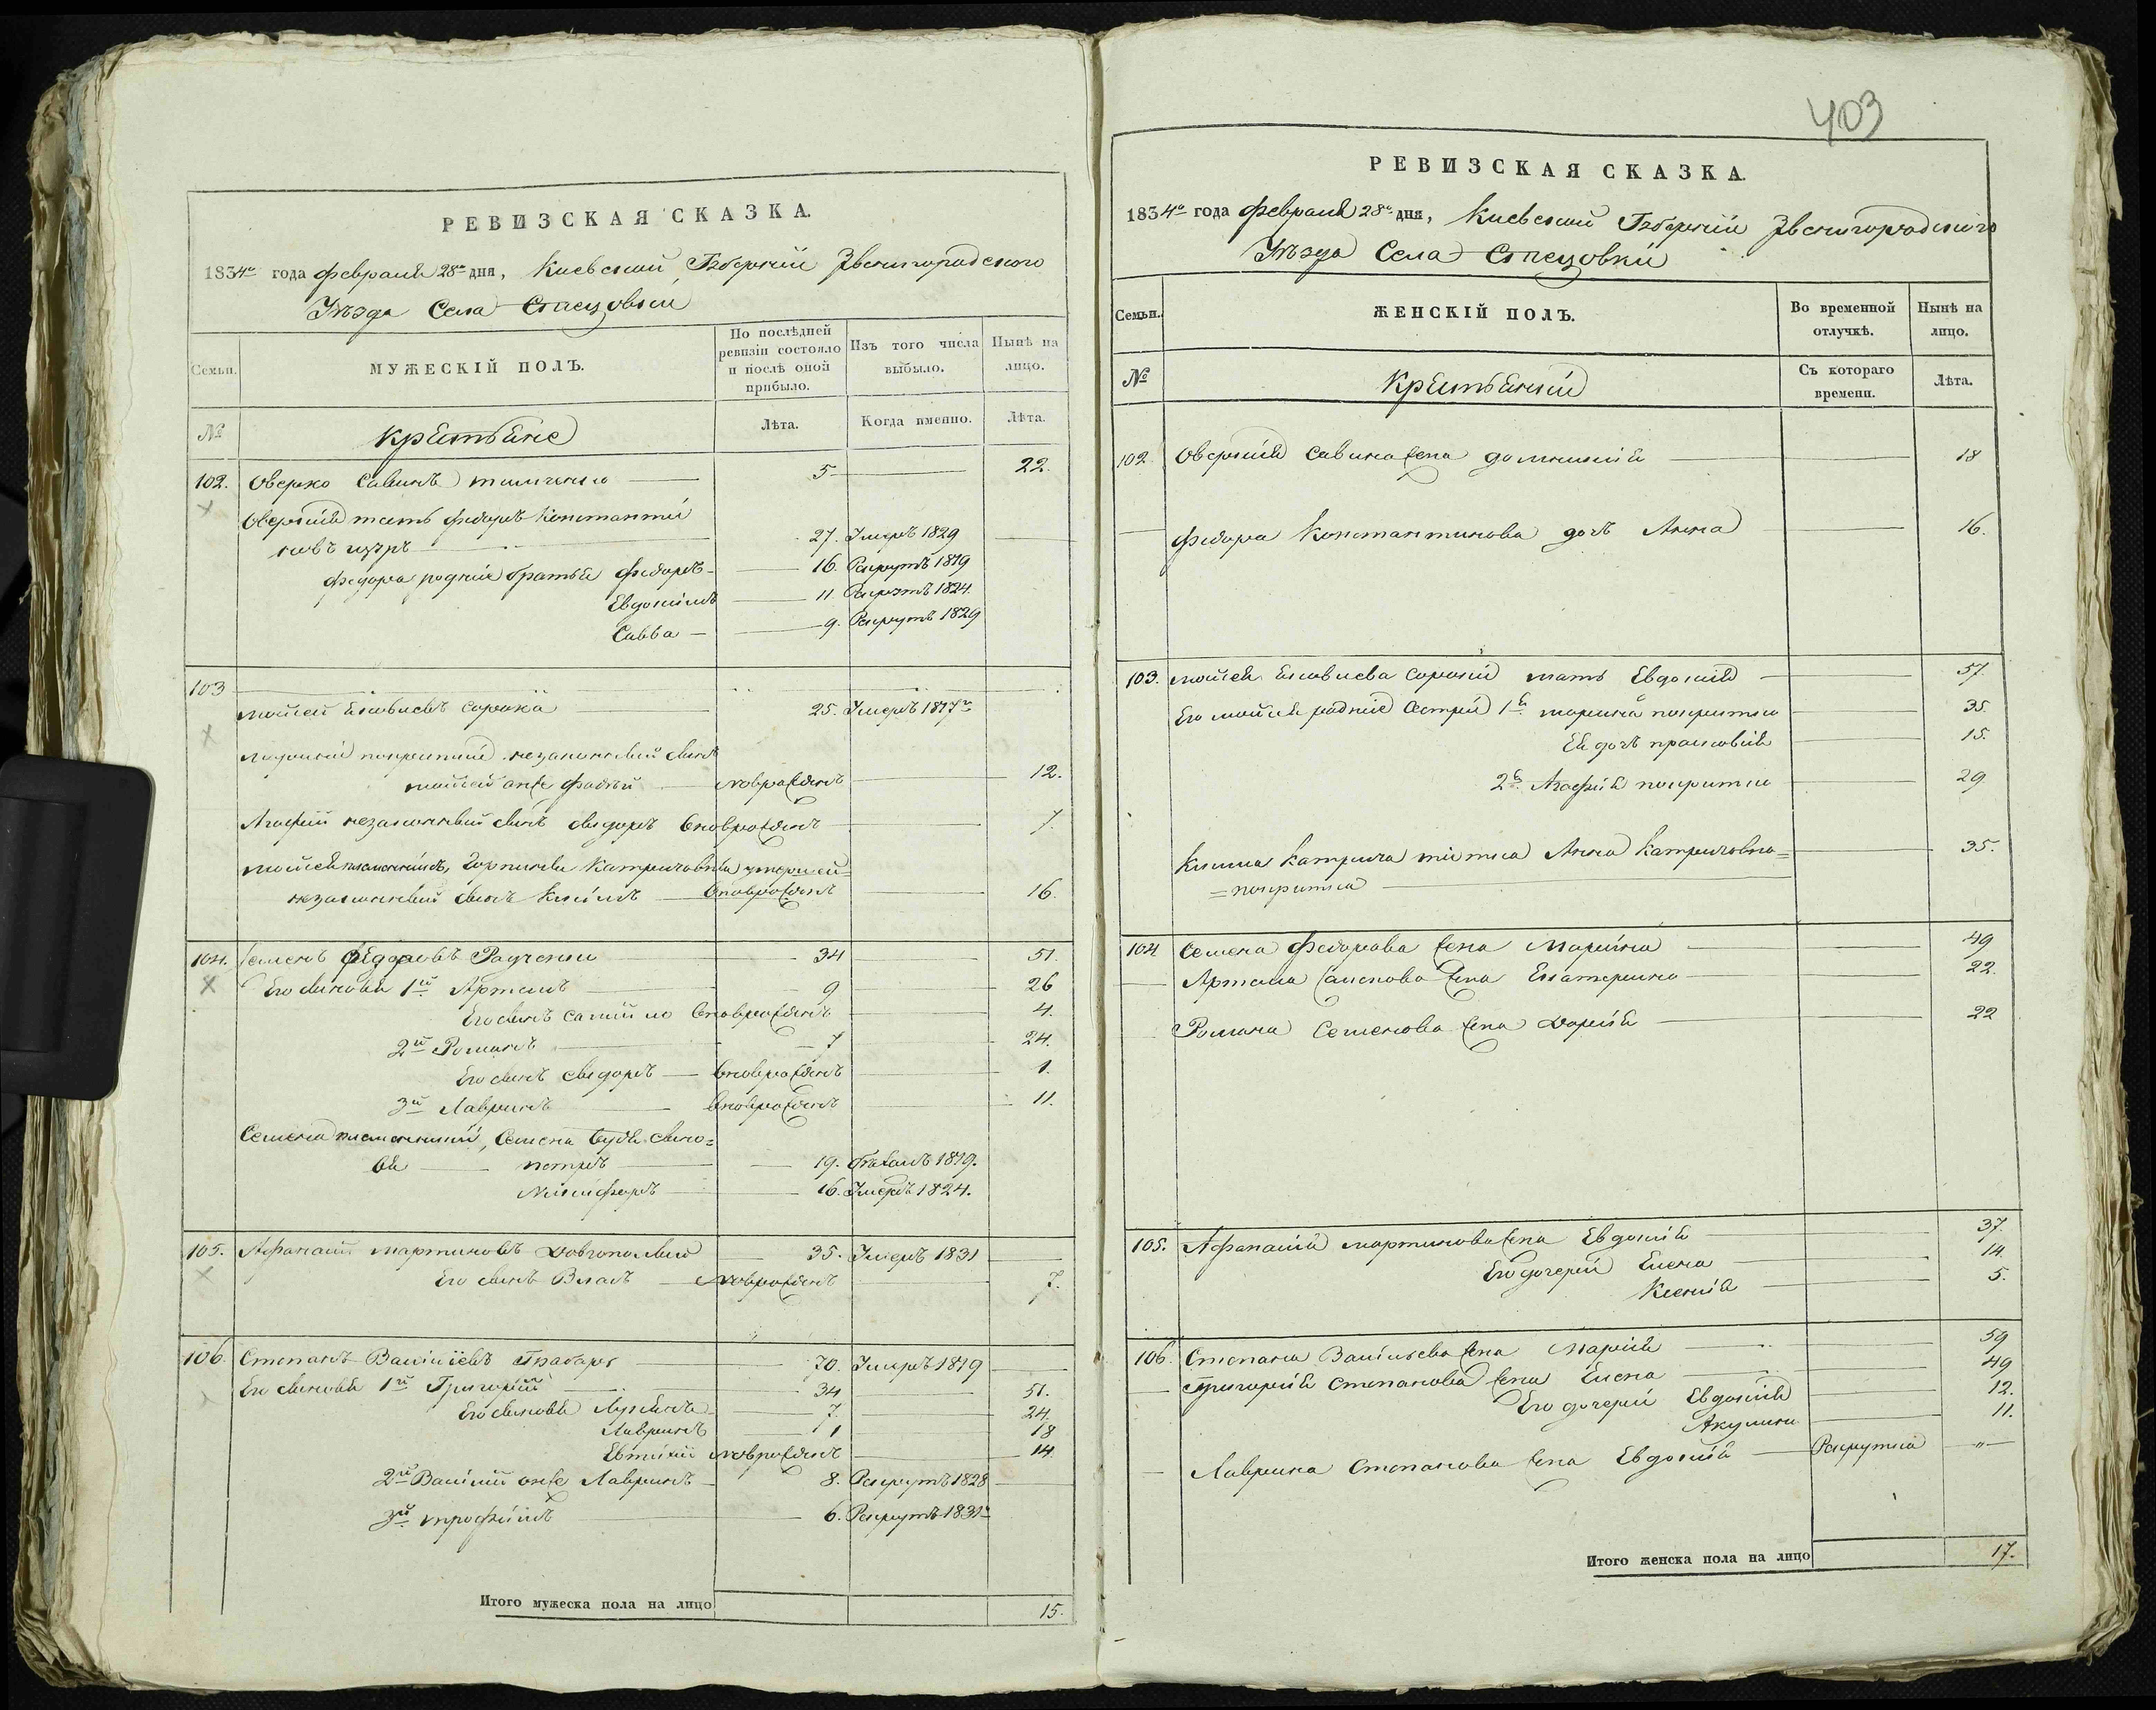 403
РЕВИЗСКАЯ СКАЗКА.
1834го года февраля 28го дня, Киевской Губерніи Звенигородского
Уѣзда Села Спецовки
Семьи.
МУЖЕСКІЙ ПОЛЪ.
По послѣдней ревизіи состояло и послѣ оной прибыло.
Изъ того числа выбыло.
Нынѣ на лицо.
№
крестьяне
Лѣта.
Когда именно.
Лѣта.
102. Оверко Савинъ 5 22.
Оверкія зять Федоръ Константи
новъ 27. Умеръ 1829
Федора родние братья Федоръ 16. Рекрутъ 1819
Евдокимъ 11 Рекрутъ 1824.
Савва 9. Рекрутъ 1829
103
Мойсей Яковлевъ Сорока 25. Умеръ 1817го
незаконный синъ
Мойсей онже Фадѣй Новрожденъ 12.
Агафіи незаконный синъ Сидоръ Новорожденъ 7.
Мойсея племенникъ,
незаконный синъ Кирилъ Новорожденъ 16.
104. Семенъ Федоровъ Радченко 34 51.
Его синовья 1й Артемъ 9 26
Его синъ Новорожденъ 4.
2й Романъ 7 24.
Его синъ Сидоръ Новорожденъ 1.
3й Лавринъ Новорожденъ 11.
Семена племенники, Семена сино=
вя петръ 19. Бежалъ 1819.
Никифоръ 16. Умеръ 1824.
105. Афанасій мартиновъ Довгополый 35. Умеръ 1831
Его синъ Власъ Новрожденъ 7.
106. Степанъ Василіевъ Грабаръ 70. Умеръ 1819
Его синовья 1й Григорій 34 51.
Его синовья Лукьянъ 7. 24.
Лавринъ 1 18
Евтихій Новрожденъ 14.
2й Василій онже Лавринъ 8. Рекрутъ 1828
3й трофимъ 6. Рекрутъ 1831го
Итого мужеска пола на лицо 15.
РЕВИЗСКАЯ СКАЗКА.
1834го года февраля 28го дня, Киевской Губерніи Звенигородского
Уѣзда Села Спецовки
Семьи.
ЖЕНСКІЙ ПОЛЪ.
Во временной отлучкѣ.
Нынѣ на лицо.
№
крестьянки
Съ котораго времени.
Лѣта.
102 Оверкія Савина жена домникія 18
Федора Константинова дочь Анна 16.
103. мойсея Яковлева Сороки мать Евдокія 57.
Его мойсея родние сестри 1я марина покритка 35.
Ея дочь прасковія 15.
2я Агафія покритка 29
Анна 35.
=покритка
104 Семена Федорова жена Марина 49
Артема Семенова жена Екатерина 22.
Романа Семенова жена Дарія 22
105. Афанасія мартинова жена Евдокія 37.
Его дочери Елена 14.
Ксенія 5.
106. Степана Васильева жена Марія 59
Григорія Степанова жена Елена 49
Его дочери Евдокія 12.
Акулина 11.
Лаврина Степанова жена Евдокія Рекрутка "
Итого женска пола на лицо 17.